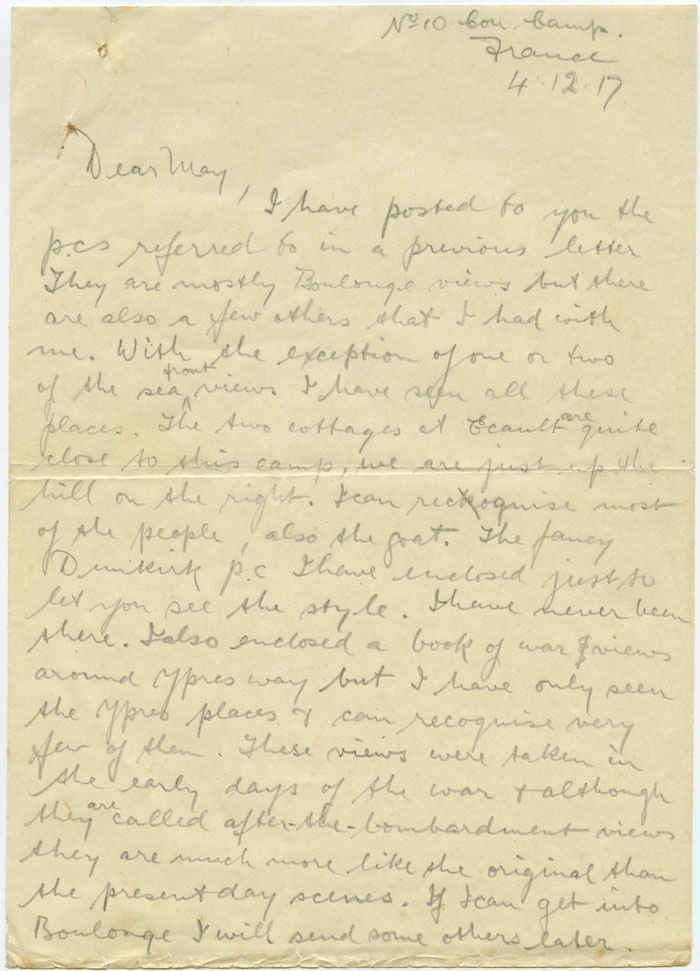 No 10 Con. Camp.
France
4.12.17
Dear May,
I have posted to you the
p.cs referred to in a previous letter
They are mostly Boulonge views but there
are also a few others that I had with
me. With the exception of one or two
of the sea front views I have seen all these
places. The two cottages at Ecault are quite
close to this camp, we are just up the
hill on the right. I can recognise most
of the people, also the goat. The fancy
Dunkirk p.c I have enclosed just to
let you see the style. I have never been
there. I also enclosed a book of war views
around Ypres way but I have only seen
the Ypres places & can recognise very
few of them. These views were taken in
the early days of the war & although
they are called after-the-bombardment views
they are much more like the original than
the present day scenes. If I can get into
Boulonge I will send some others later.